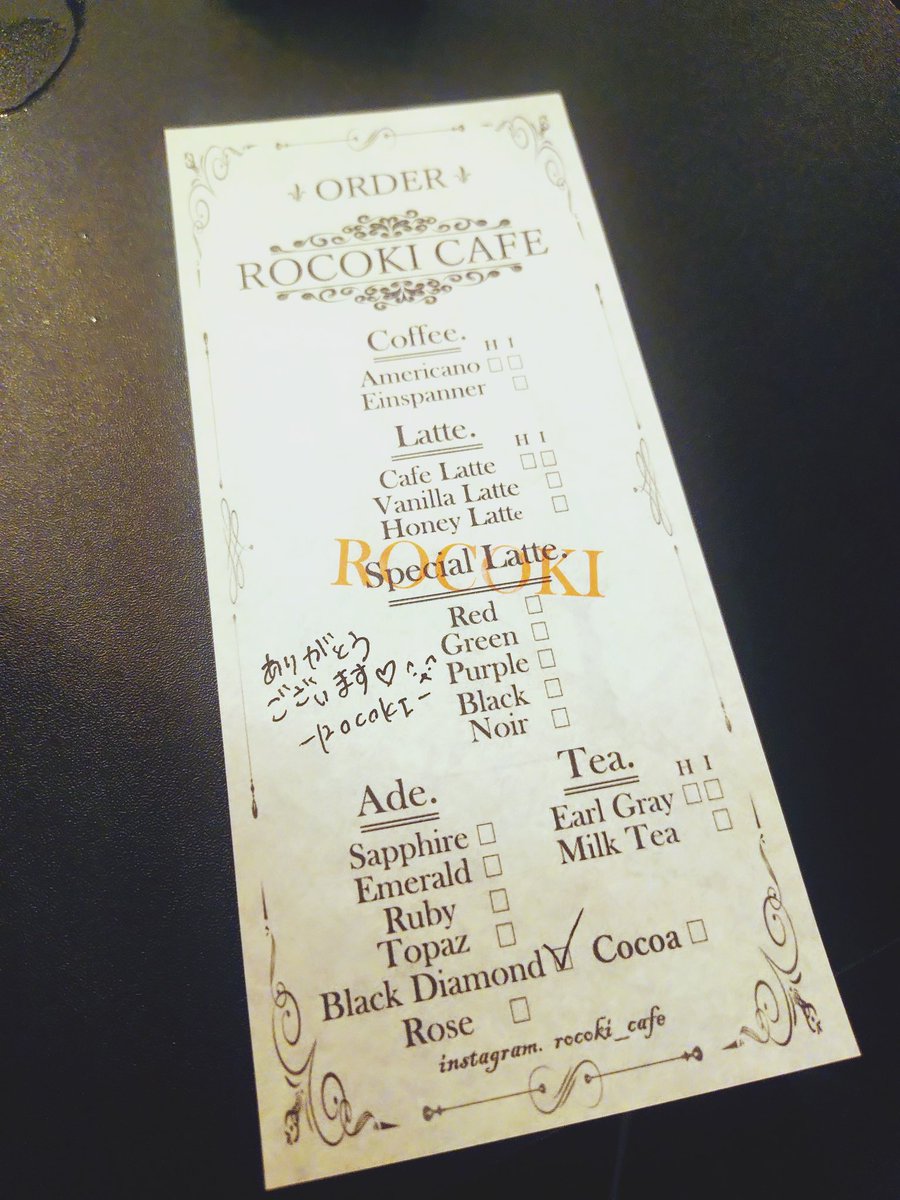 ORDER
ROCOKI CAFE
Coffee.
H I
Americano
Einspanner
Latte.
H I
Cafe Latte
Vanilla Latte
Honey Latte
ROCOKI
Special Latte.
Red
Green
Purple
Black
Noir
ありがとう
ございます♡
-ROCOKI-
Ade.
Sapphire
Emerald
Ruby
Topaz
Black Diamond
Rose
Tea.
H I
Earl Gray
Milk Tea
Cocoa
instagram. rocoki_cafe